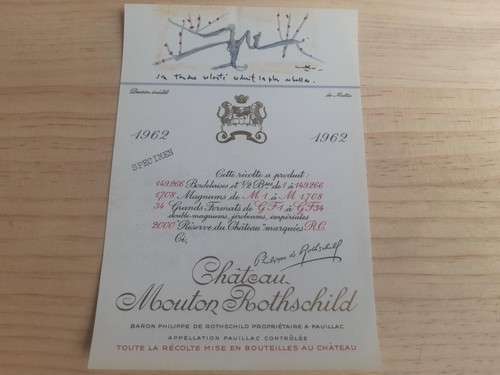 sa tendre velouté séduit la plus rebelle.
Dessin inédit de Matta
1962 1962
SPECIMEN
Cette récolte a produit :
149.266 Bordelaises et 1/2 Bses de 1 à 149.266
1708 Magnums de M 1 à M 1708
34 Grands Formats de G F 1 à G F 34
double-magnums, jéroboams, impériales
2000 "Réserve du Château" marquées R.C.
Ci,
Philippe de Rothschild
Château
Mouton Rothschild
BARON PHILIPPE DE ROTHSCHILD PROPRIÉTAIRE A PAUILLAC
APPELLATION PAUILLAC CONTRÔLÉE
TOUTE LA RÉCOLTE MISE EN BOUTEILLES AU CHÂTEAU